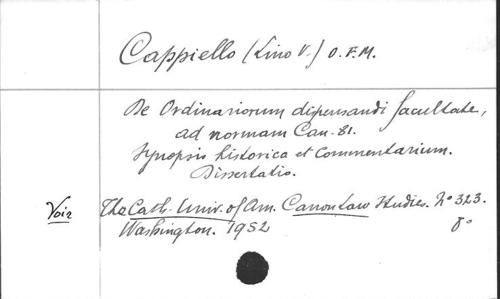 Cappiello (Lino V.) O.F.M.
De Ordinariorum dispensandi facultate,
ad normam Can. 81.
Synopsis historica et Commentarium.
Dissertatio.
Voir The Cath. Univ. of Am. Canon Law Studies. No 323.
Washington. 1952 8o